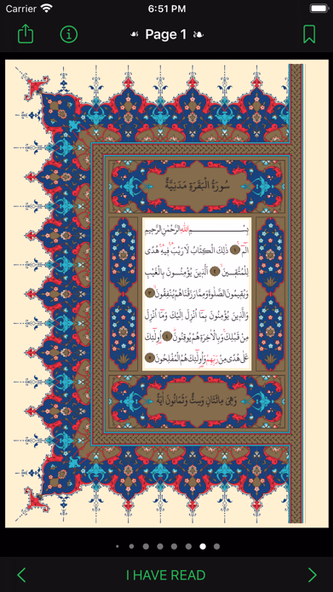 Carrier 6:51 PM
Page 1
سُورَةُ الْبَقَرَةِ مَدَنِيَّةٌ
بِسْمِ اللّٰهِ الرَّحْمٰنِ الرَّحٖيمِ
الٓمٓ ﴿١﴾ ذٰلِكَ الْكِتَابُ لَا رَيْبَ فٖيهِ هُدًى
لِلْمُتَّقٖينَ ﴿٢﴾ اَلَّذٖينَ يُؤْمِنُونَ بِالْغَيْبِ
وَيُقٖيمُونَ الصَّلٰوةَ وَمِمَّا رَزَقْنَاهُمْ يُنْفِقُونَ ﴿٣﴾
وَالَّذٖينَ يُؤْمِنُونَ بِمَٓا اُنْزِلَ اِلَيْكَ وَمَٓا اُنْزِلَ
مِنْ قَبْلِكَ وَبِالْاٰخِرَةِ هُمْ يُوقِنُونَ ﴿٤﴾ اُولٰٓئِكَ
عَلٰى هُدًى مِنْ رَبِّهِمْ وَاُولٰٓئِكَ هُمُ الْمُفْلِحُونَ ﴿٥﴾
وَهِيَ مِائَتَانِ وَسِتٌّ وَثَمَانُونَ اٰيَةً
I HAVE READ